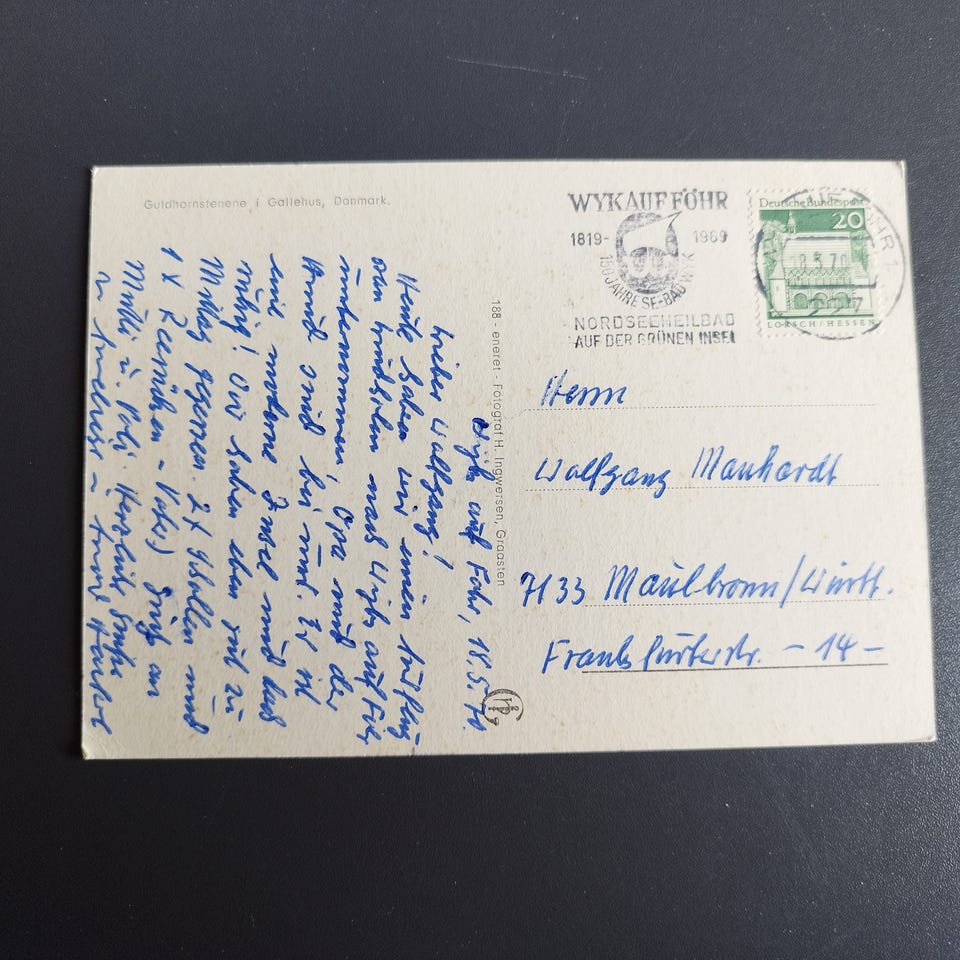 Guldhornstenene i Gallehus, Danmark.
WYK AUF FÖHR
1819-
1969
150 JAHRE SEEBAD WYK
NORDSEEHEILBAD
AUF DER GRÜNEN INSEL
Deutsche Bundespost
20
LORSCH/HESSEN
188 - eneret - Fotograf H. Ingwersen, Graasten
Herrn
Wolfgang Mauhardt
7133 Maulbronn/Württ.
Frankfurterstr. - 14 -
Wyk auf Föhr, 18.5.70.
Lieber Wolfgang!
Heute haben wir einen Ausflug
von nach Wyk auf Föhr
unternommen, Opa und der
Hund sind bei uns. Es ist
eine moderne Insel und
ruhig! Wir haben eben gut zu
Mittag gegessen. 2x Schollen und
1x - Vater) Gruß an
Mutti u. Herzliche Grüße